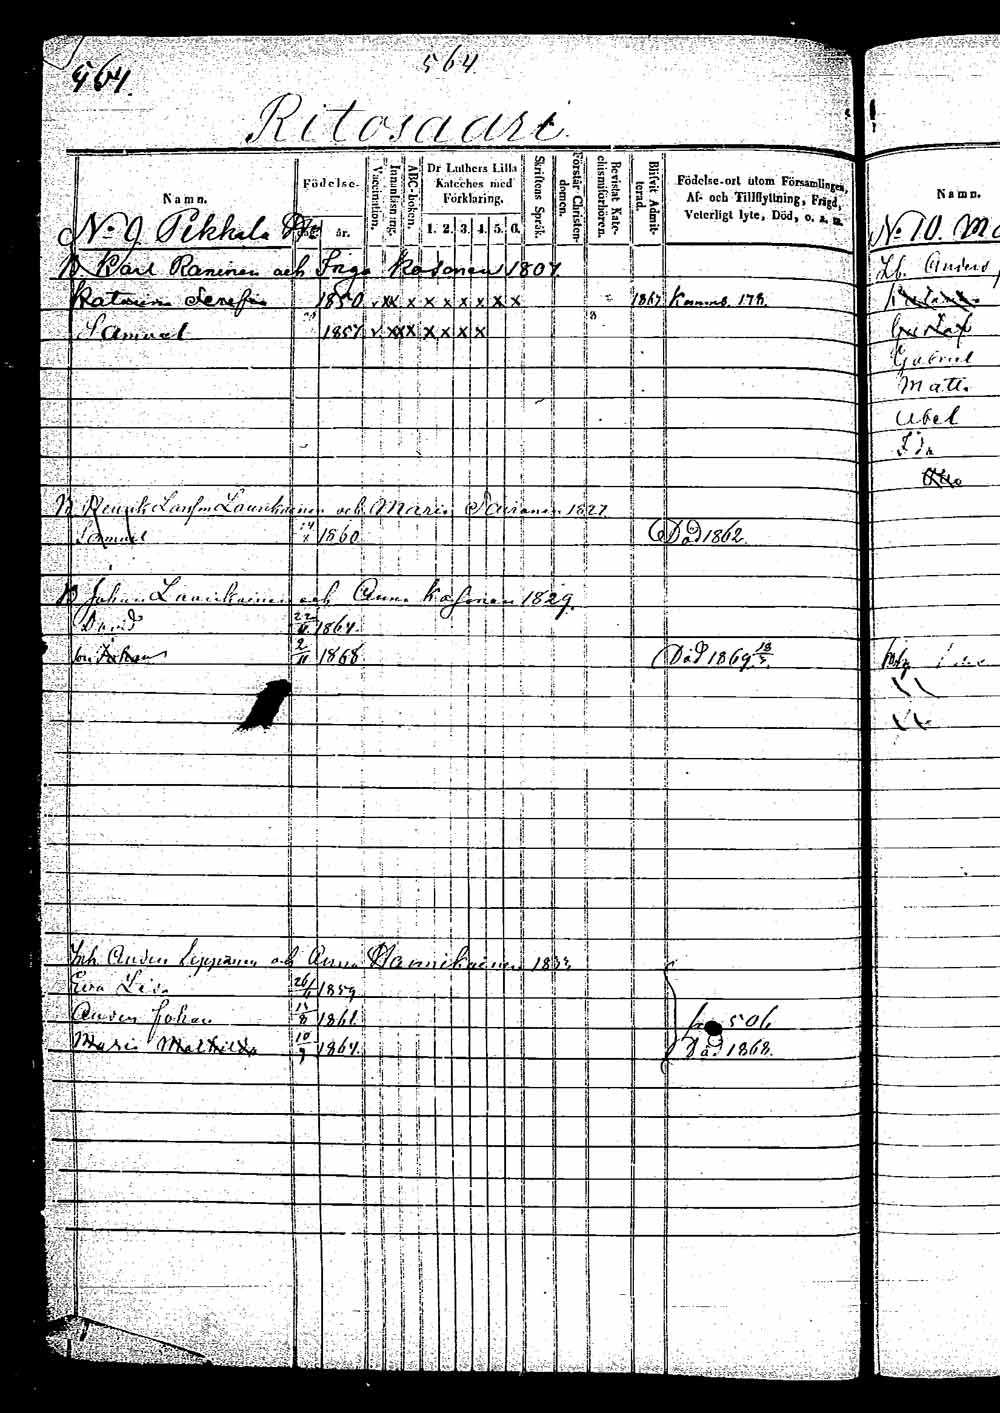 564.
564.
Ritosaari.
Namn.
Födelse-
dag. år.
Vaccination.
Innanläsning.
ABC-boken.
Dr Luthers Lilla Kateches med Förklaring.
1. 2. 3. 4. 5. 6.
Skriftens Språk.
Förstår Christendomen.
Bevistat Katechismiförhören.
Blifvit Admitterad.
Födelse-ort utom Församlingen, Af- och Tillflyttning, Frägd, Veterligt lyte, Död, o. s. m.
No 9. Pekkala
B Karl Raninen och Inga Kasonen 1807.
Katarina Serafia 1850. v xx x x x x x x x 1867 Kommb. 178.
Samuel 1857 v xxx x x x x
B Henrik Laurikainen och Maria 1827
Samuel 1860. Död 1862.
B Johan Laurikainen och Anna Kasonen 1829.
David 22 1864.
Johan 2/11 1868. Död 1869
Inh. Anders Leppänen och Anna 183
Eva Lisa 26 1859
Anders Johan 8 1861. 506
Maria Mathilda 10/9 1864. Död 1868.
Namn.
No 10. Ma
Lb. Anders
Gustaf
Gabriel
Matts
Abel
Ida